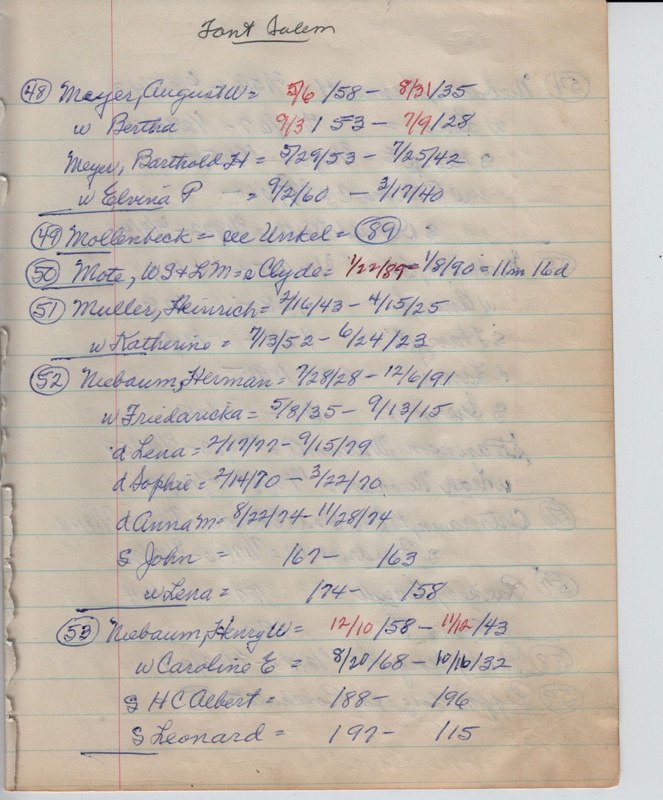 Font Salem
48 Meyer, August W = 5/6 /58 - 8/31/35
w Bertha 9/3 / 53 - 7/9/28
Meyer, Barthold H = 5/29/53 - 7/25/42
w Elvina P = 9/2/60 - 3/17/40
49 Mollenbeck = see Unkel = 89
50 Mote, W S & L M = s Clyde = 1/22/89 = 1/8/90 = 11m 16d
51 Muller, Heinrich = 2/16/43 - 4/15/25
w Katherine = 7/13/52 - 6/24/23
52 Niebaum, Herman = 7/28/28 - 12/6/91
w Friedaricka = 5/8/35 - 9/13/15
d Lena = 2/17/77 - 9/15/79
d Sophie = 2/14/70 - 3/22/70
d Anna M = 8/22/74 - 11/28/74
S John = /67 - /63
w Lena = /74 - /58
53 Niebaum, Henry W = 12/10 /58 - 11/12 /43
w Caroline E = 8/20/68 - 10/16/32
S H C Albert = /88 - /96
S Leonard = /97 - /15